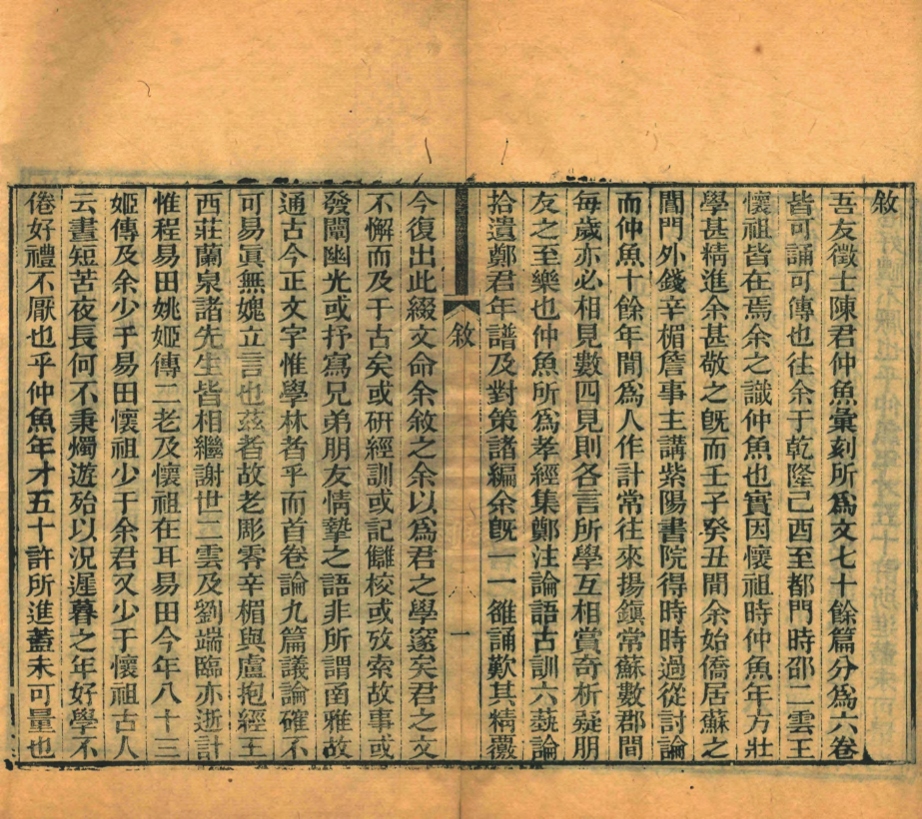 敘
吾友徵士陳君仲魚彙刻所爲文七十餘篇分爲六卷
皆可誦可傳也往余于乾隆己酉至都門時邵二雲王
懷祖皆在焉余之識仲魚也實因懷祖時仲魚年方壯
學甚精進余甚敬之旣而壬子癸丑閒余始僑居蘇之
閶門外錢辛楣詹事主講紫陽書院得時時過從討論
而仲魚十餘年閒爲人作計常往來揚鎭常蘇數郡閒
每歲亦必相見數四見則各言所學互相賞奇析疑朋
友之至樂也仲魚所爲孝經集鄭注論語古訓六藝論
拾遺鄭君年譜及對策諸編余旣一一雒誦歎其精覈
敘
一
今復出此綴文命余敘之余以爲君之學邃矣君之文
不懈而及于古矣或硏經訓或記讎校或攷索故事或
發闡幽光或抒寫兄弟朋友情摯之語非所謂南雅故
通古今正文字惟學林者乎而首卷論九篇議論確不
可易眞無媿立言也茲者故老彫零辛楣與盧抱經王
西莊蘭泉諸先生皆相繼謝世二雲及劉端臨亦逝計
惟程易田姚姬傳二老及懷祖在耳易田今年八十三
姬傳及余少乎易田懷祖少于余君又少于懷祖古人
云晝短苦夜長何不秉燭遊殆以況遲暮之年好學不
倦好禮不厭也乎仲魚年才五十許所進蓋未可量也